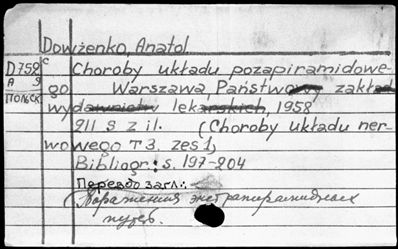 Dowżenko, Anatol
D759 c Choroby układu pozapiramidowe-
A 9 go Warszawa, Państwowy zakład
Польск wydawnictw lekarskich, 1958
211 s z il. (Choroby układu ner-
wowego T 3. zes 1)
Bibliogr: s. 197-204
Перев до загл.:
Поражения экстрапирамидных
путев.